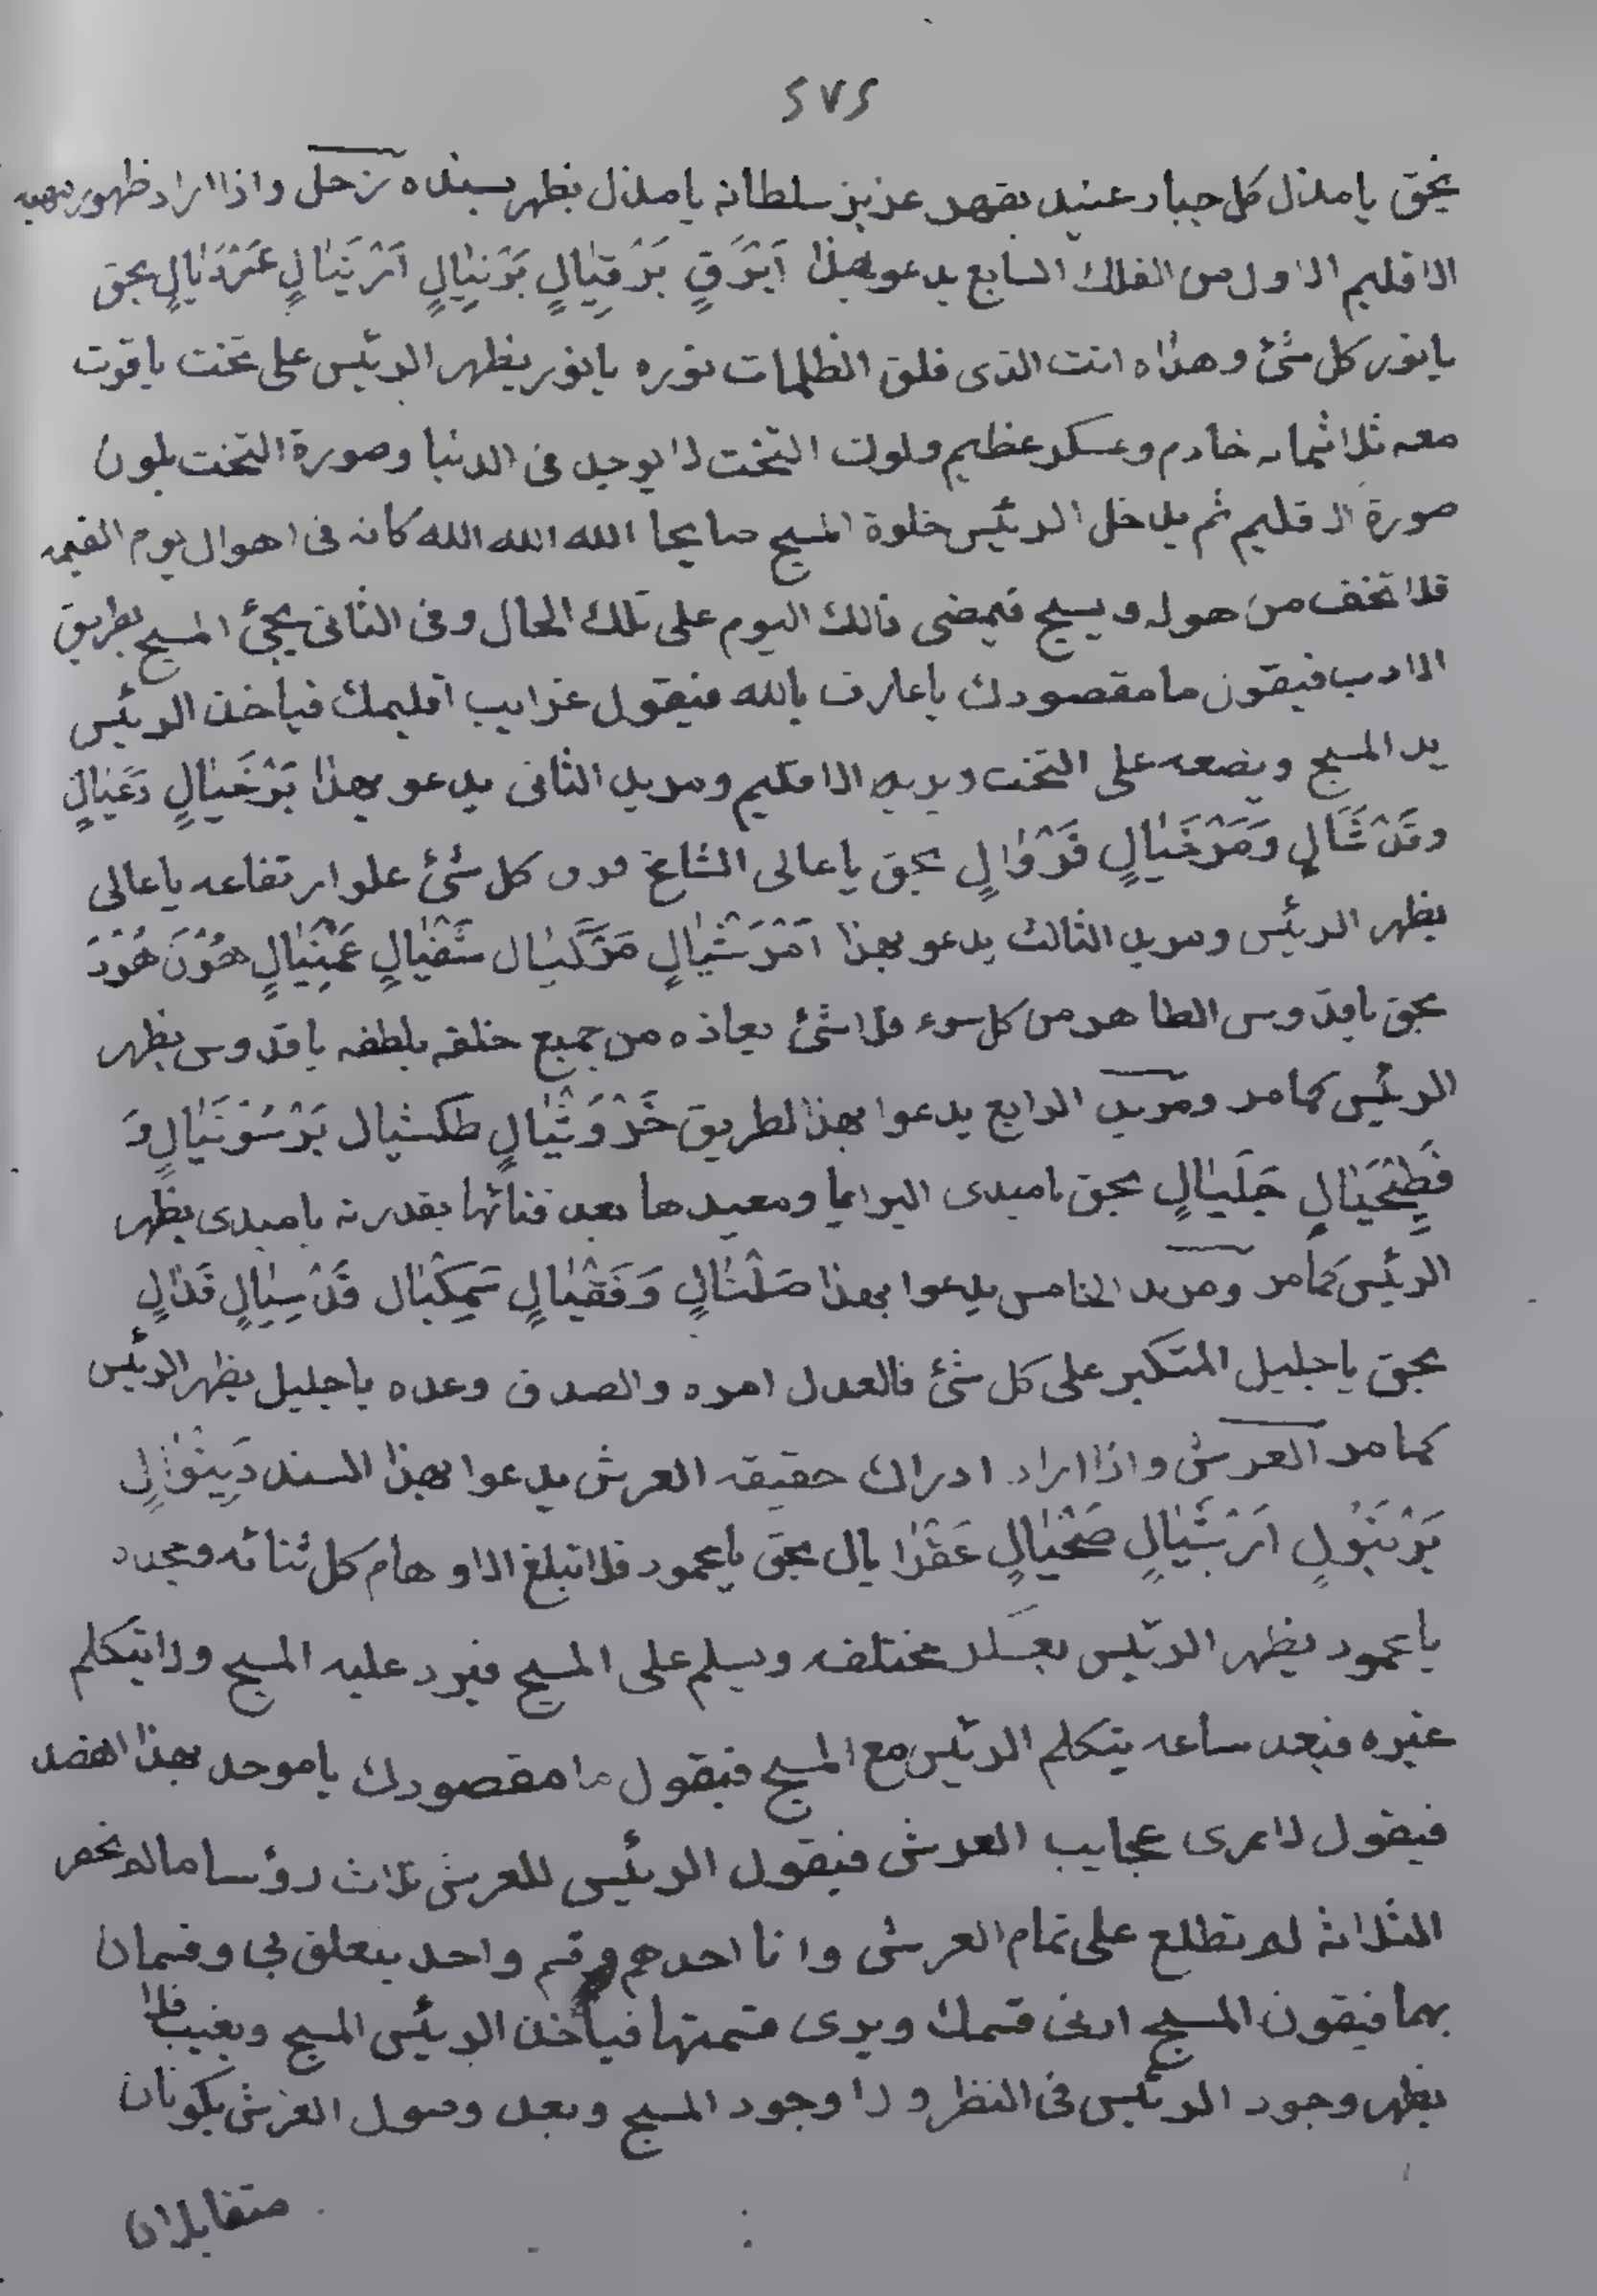 ٢٧٢
بحق يا مذل كل جبار عنيد بقهر عزيز سلطانه يا مذل يظهر سنده زحل واذا اراد ظهور
الاقليم الاول من الفلك السابع يدعو بهذا اَبَرَقٍ بَرْقِيَالٍ بَرْنِيَالٍ اَرْيَنَيَالٍ عَرْدَيَالٍ بحق
يا نور كل شئ وهداه انت الذى فلق الظلمات نوره يا نور يظهر الرئيس على تخت ياقوت
معه ثلاثمايه خادم وعسكر عظيم ولون التخت لا يوجد فى الدنيا وصورة التخت بلون
صورة الاقليم ثم يدخل الرئيس خلوة المسبح صايحا الله الله الله كانه فى اهوال يوم القيمه
فلا تخف من هوله ويسبح فيمضى ذالك اليوم على تلك الحال وفى الثانى يجئ المسبح بطريق
الادب فيقون ما مقصودك يا عارف بالله فيقول غرايب اقليمك فياخذ الرئيس
يد المسبح ويضعه على التخت ويريه الاقليم ومريد الثانى يدعو بهذا بَرْخَيَالٍ دَعَيَالٍ
وقَدْشَالٍ وَمَرْخَيَالٍ فَرْوَالٍ بحق يا عالى الشامخ فوق كل شئ علو ارتفاعه يا عالى
يظهر الرئيس ومريد الثالث يدعو بهذا اَمْرَشَيَالٍ مَرَّكَيَال شَفَيَالٍ عَمْنِيَالٍ هُوْنَ هُوْدَ
بحق يا قدوس الطاهر من كل سوء فلا شئ يعاذه من جميع خلقه بلطفه يا قدوس يظهر
الرئيس كما مر ومريد الرابع يدعوا بهذا لطريق خَرْوَشَيَالٍ طكشيال بَرْسُوْنَيَالٍ وَ
فَطِيْحَيَالٍ جَلَيَالٍ بحق يا مبدى البرايا ومعيدها بعد فنائها بقدرته يا مبدى يظهر
الرئيس كما مر ومريد الخامس يدعوا بهذا صَلْشَالٍ وَفَقْيَالٍ سَمِكْيَال قَدْسِيَالٍ قَدَالٍ
بحق يا جليل المتكبر على كل شئ فالعدل امره والصدق وعده يا جليل يظهر الرئيس
كما مر العرش واذا اراد ادراك حقيقه العرش يدعوا بهذا السند دَيِنْوَالٍ
بَرْنَبُوْلٍ اَرْشَيَالٍ صَحْيَالٍ عَقْرَا يال بحق يا محمود فلا تبلغ الاوهام كل ثنائه ومجده
يا محمود يظهر الرئيس بعسكر مختلفه ويسلم على المسبح فيرد عليه المسبح ولا يتكلم
غيره فبعد ساعه يتكلم الرئيس مع المسبح فيقول ما مقصودك يا موحد بهذا القصد
فيقول لا مرى عجايب العرش فيقول الرئيس للعرش ثلاث رؤسا مالم تحضر
الثلاثه لم تطلع على تمام العرش وانا احدهم وقسم واحد يتعلق بى وقسمان
بهما فيقون المسبح ارنى قسمك ويرى قسمتها فياخذ الرئيس المسبح ويغيب فلا
يظهر وجود الرئيس فى النظر ولا وجود المسبح وبعد وصول العرش يكونان
متقابلان